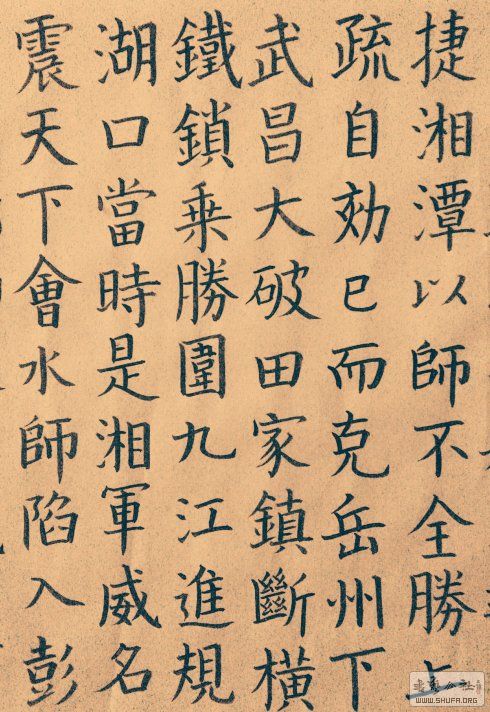 捷湘潭以師不全勝上
疏自劾已而克岳州下
武昌大破田家鎮斷橫
鐵鎖乗勝圍九江進規
湖口當時是湘軍威名
震天下會水師陷入彭
WWW.SHUFA.ORG